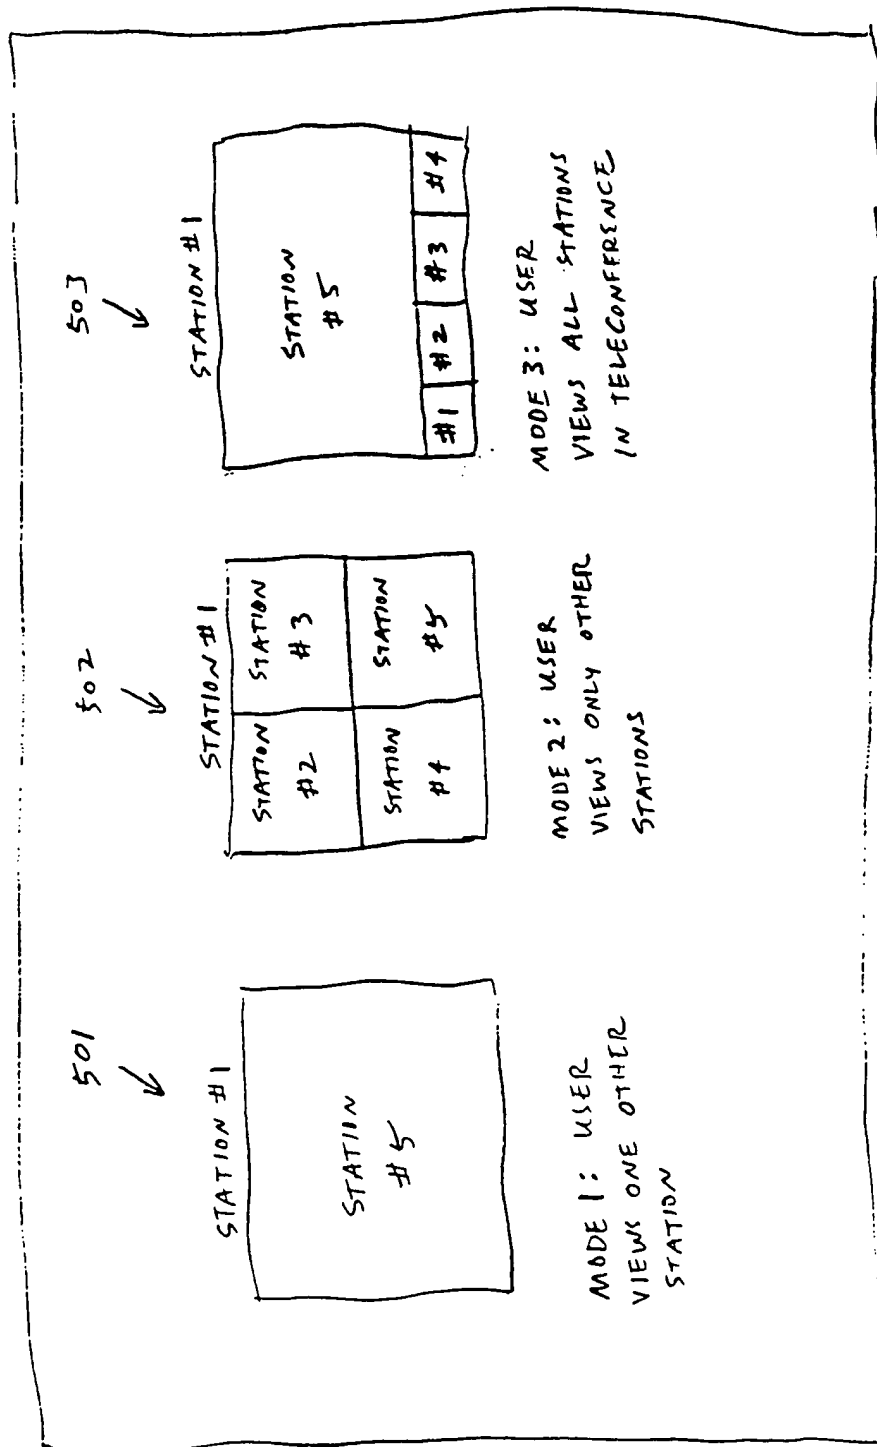 501
STATION #1
STATION
#5
MODE 1: USER
VIEWS ONE OTHER
STATION
502
STATION #1
STATION
#2
STATION
#3
STATION
#4
STATION
#5
MODE 2: USER
VIEWS ONLY OTHER
STATIONS
503
STATION #1
STATION
#5
#1 #2 #3 #4
MODE 3: USER
VIEWS ALL STATIONS
IN TELECONFERENCE